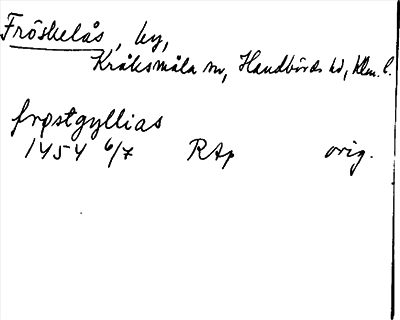 Fröskelås, by,
Kråksmåla sn, Handbörds hd, Klm. l.
frøstgyllias
1454 6/7 RAp orig.